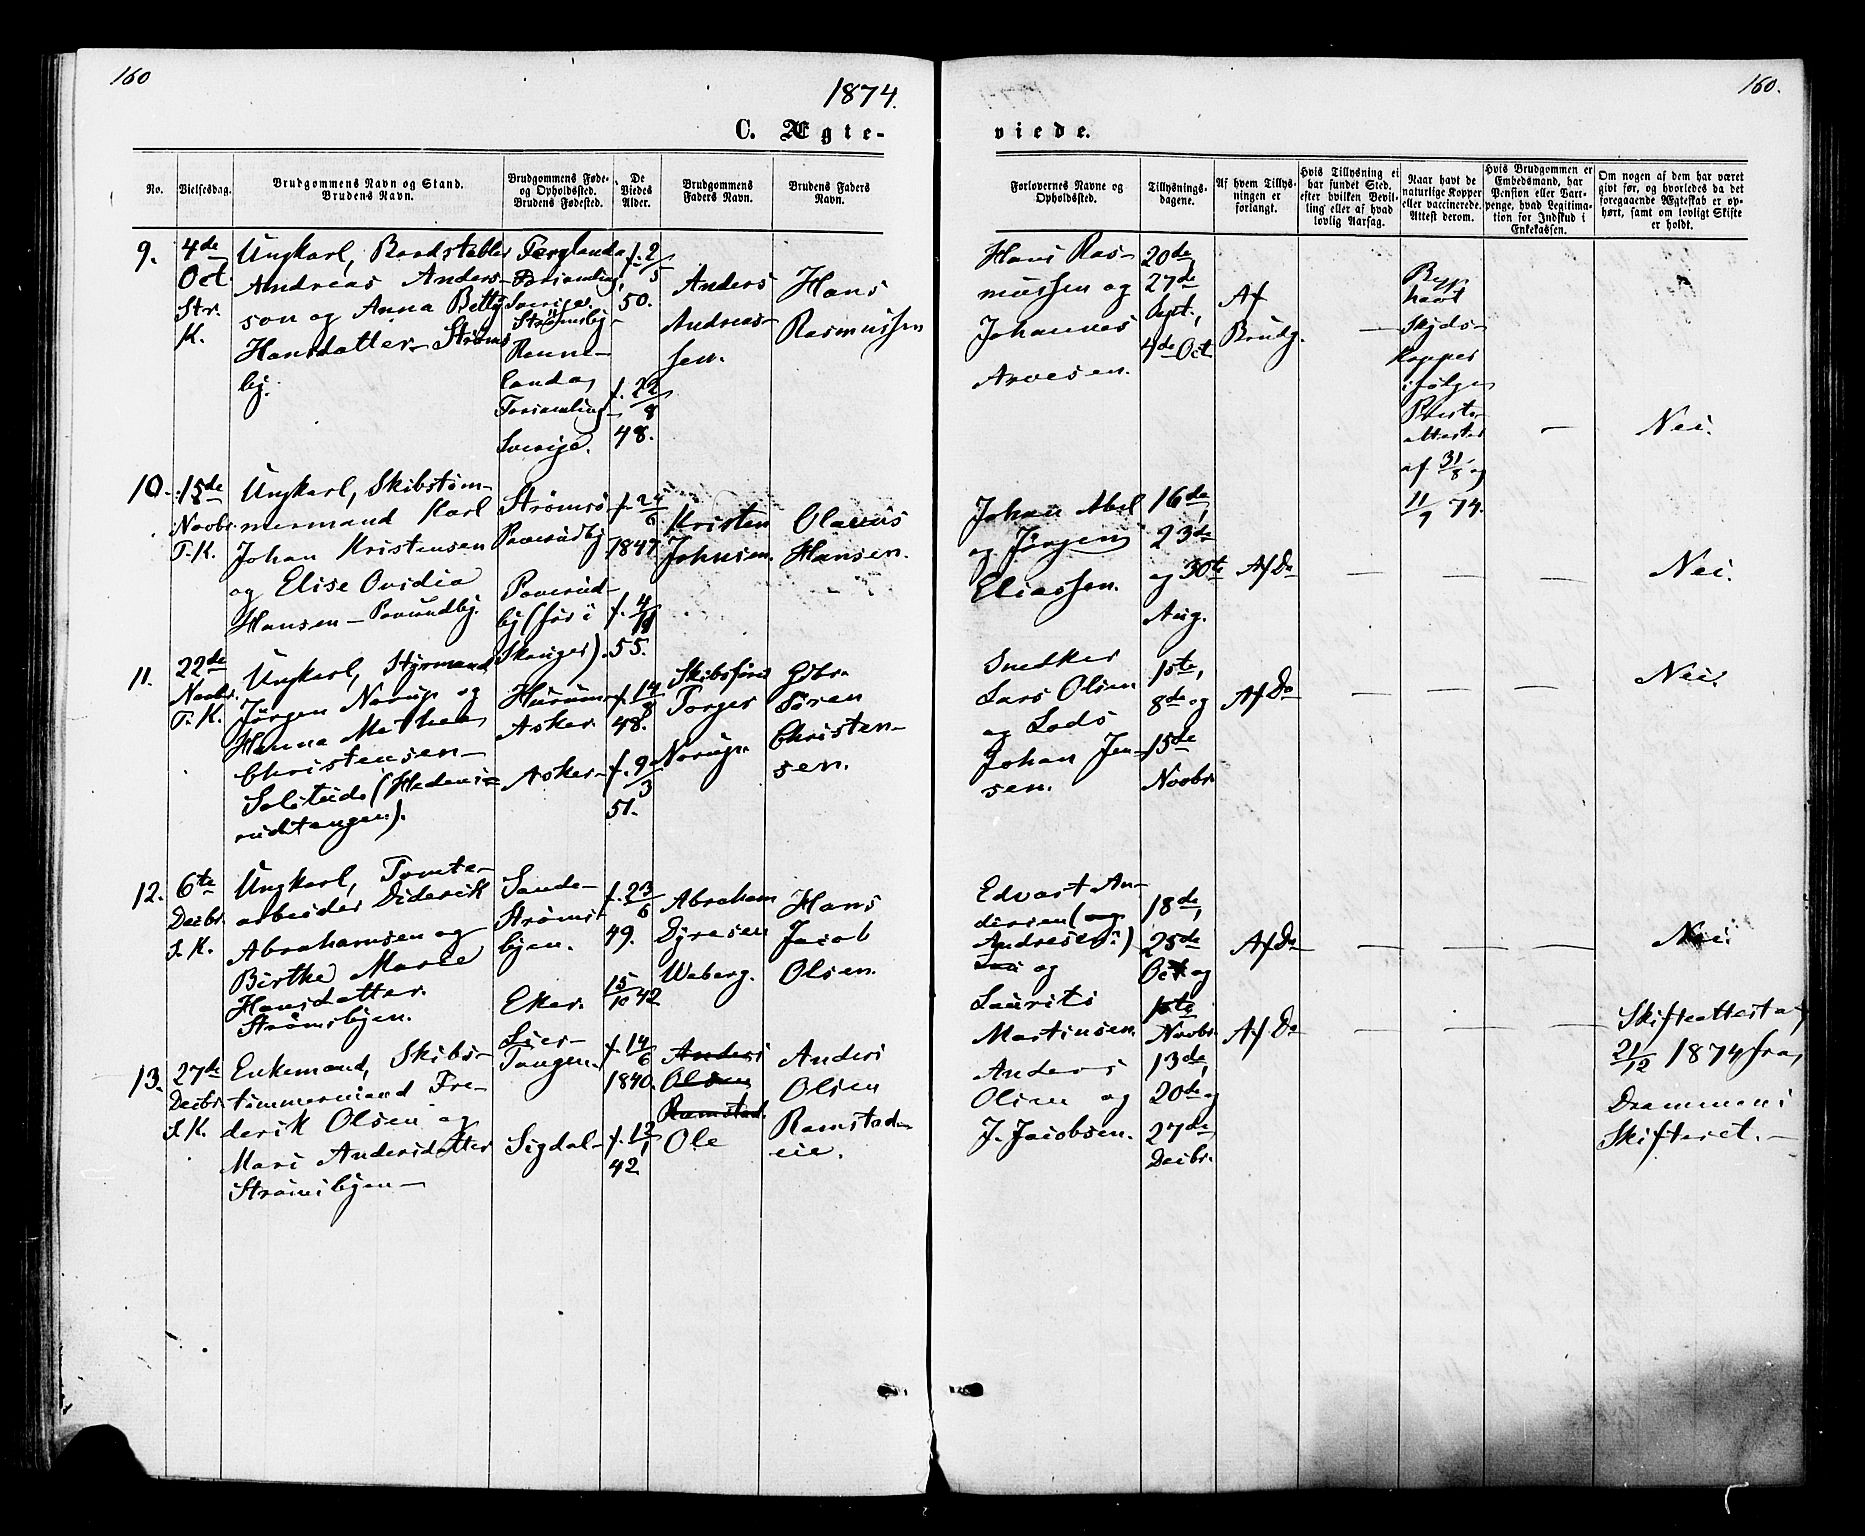 160
1874.
C. Ægte-
No.
Vielsesdag.
Brudgommens Navn og Stand.
Brudens Navn.
Brudgommens Føde-
og Opholdssted.
Brudens Fødested.
De
Viedes
Alder.
Brudgommens
Faders Navn.
Brudens Faders
Navn.
9.
4de
Oct.
Str.
K.
Ungkarl, Baadstabler
Andreas Anders-
son og Anna Betty
Hansdatter - Strøms
bj.
Sverige.
Strømsbj-
Sverige.
f. 2/5
50.
f. 22/8
48.
Anders
Andreas-
sen.
Hans
Rasmussen
10.
15de
Novbr.
T. K.
Ungkarl, Skibstøm-
mermand Karl
Johan Kristensen
og Elise Ovidia
Hansen - Poverudbj.
Strømsö
Poverudbj
Poverud-
bj (før i
Skouger).
f. 24/6
1847
f. 4/11
55.
Kristen
Johnsen.
Olavus
Hansen.
11.
22de
Novbr.
T. K.
Ungkarl, Styrmand
Jørgen Norup og
Hanna Mathea
Christensen -
Solitude (Hedens-
rudtangen).
Hurum-
Asker.
Asker -
f. 14/8
48.
f. 9/3
51.
Skibsfører
Torger
Norup.
Gbr.
Søren
Christen-
sen.
12.
6te
Decbr.
S. K.
Ungkarl, Tomte-
arbeider Diderik
Abrahamsen og
Birthe Marie
Hansdatter.
Strømsbyen.
Sande-
Strøms-
byen.
Eker.
f. 23/6
49.
15/10 42
Abraham
Dyresen
Weberg.
Hans
Jacob
Olsen.
13.
27de
Decbr.
S. K.
Enkemand, Skibs-
tømmermand Fre-
derik Olsen og
Mari Andersdatter
Strømsbyen -
Lier-
Tangen.
Sigdal -
f. 14/6
1840.
f. 12/1
42
Anders
Olsen
Ramstad.
Ole
Anders
Olsen
Ramstad-
eie.
160.
viede.
Forlovernes Navne og
Opholdssted.
Tillysnings-
dagene.
Af hvem Tillys-
ningen er
forlangt.
Hvis Tillysning ei
har fundet Sted,
efter hvilken Bevil-
ling eller af hvad
lovlig Aarsag.
Naar havt de
naturlige Kopper
eller vaccinerede.
Attest derom.
Hvis Brudgommen er
Embedsmand, har
Pension eller Var-
penge, hvad Legitima-
tion for Indskud i
Enkekassen.
Om nogen af dem har været
givt før, og hvorledes da det
foregaaende Ægteskab er op-
hørt, samt om lovligt Skifte
er holdt.
Hans Ras-
mussen og
Johannes
Arvesen.
20de,
27de
Sept.,
4de Oct
Af
Brudg.
-
havt
Skyds-
Kopper
ifølge
Preste-
attester
af 31/8 og
11/9 74.
-
Nei.
Johan Abel
og Jørgen
Eliassen.
16de,
23de
og 30te
Aug.
Af Do
-
-
-
Nei.
Snedker
Lars Olsen
og Lods
Johan Jen-
sen.
1ste,
8de og
15de
Novbr.
Af Do
-
-
-
Nei.
Edvart An-
dersen (
Andresen?)
og
Laurits
Martinsen.
18de,
25de
Oct og
1ste
Novbr.
Af Do
-
-
-
Nei.
Anders
Olsen og
J. Jacobsen.
13de,
20de og
27de
Decbr.
Af Do
-
-
-
Skifteattest af
21/12 1874 fra
Drammens
Skifteret. -